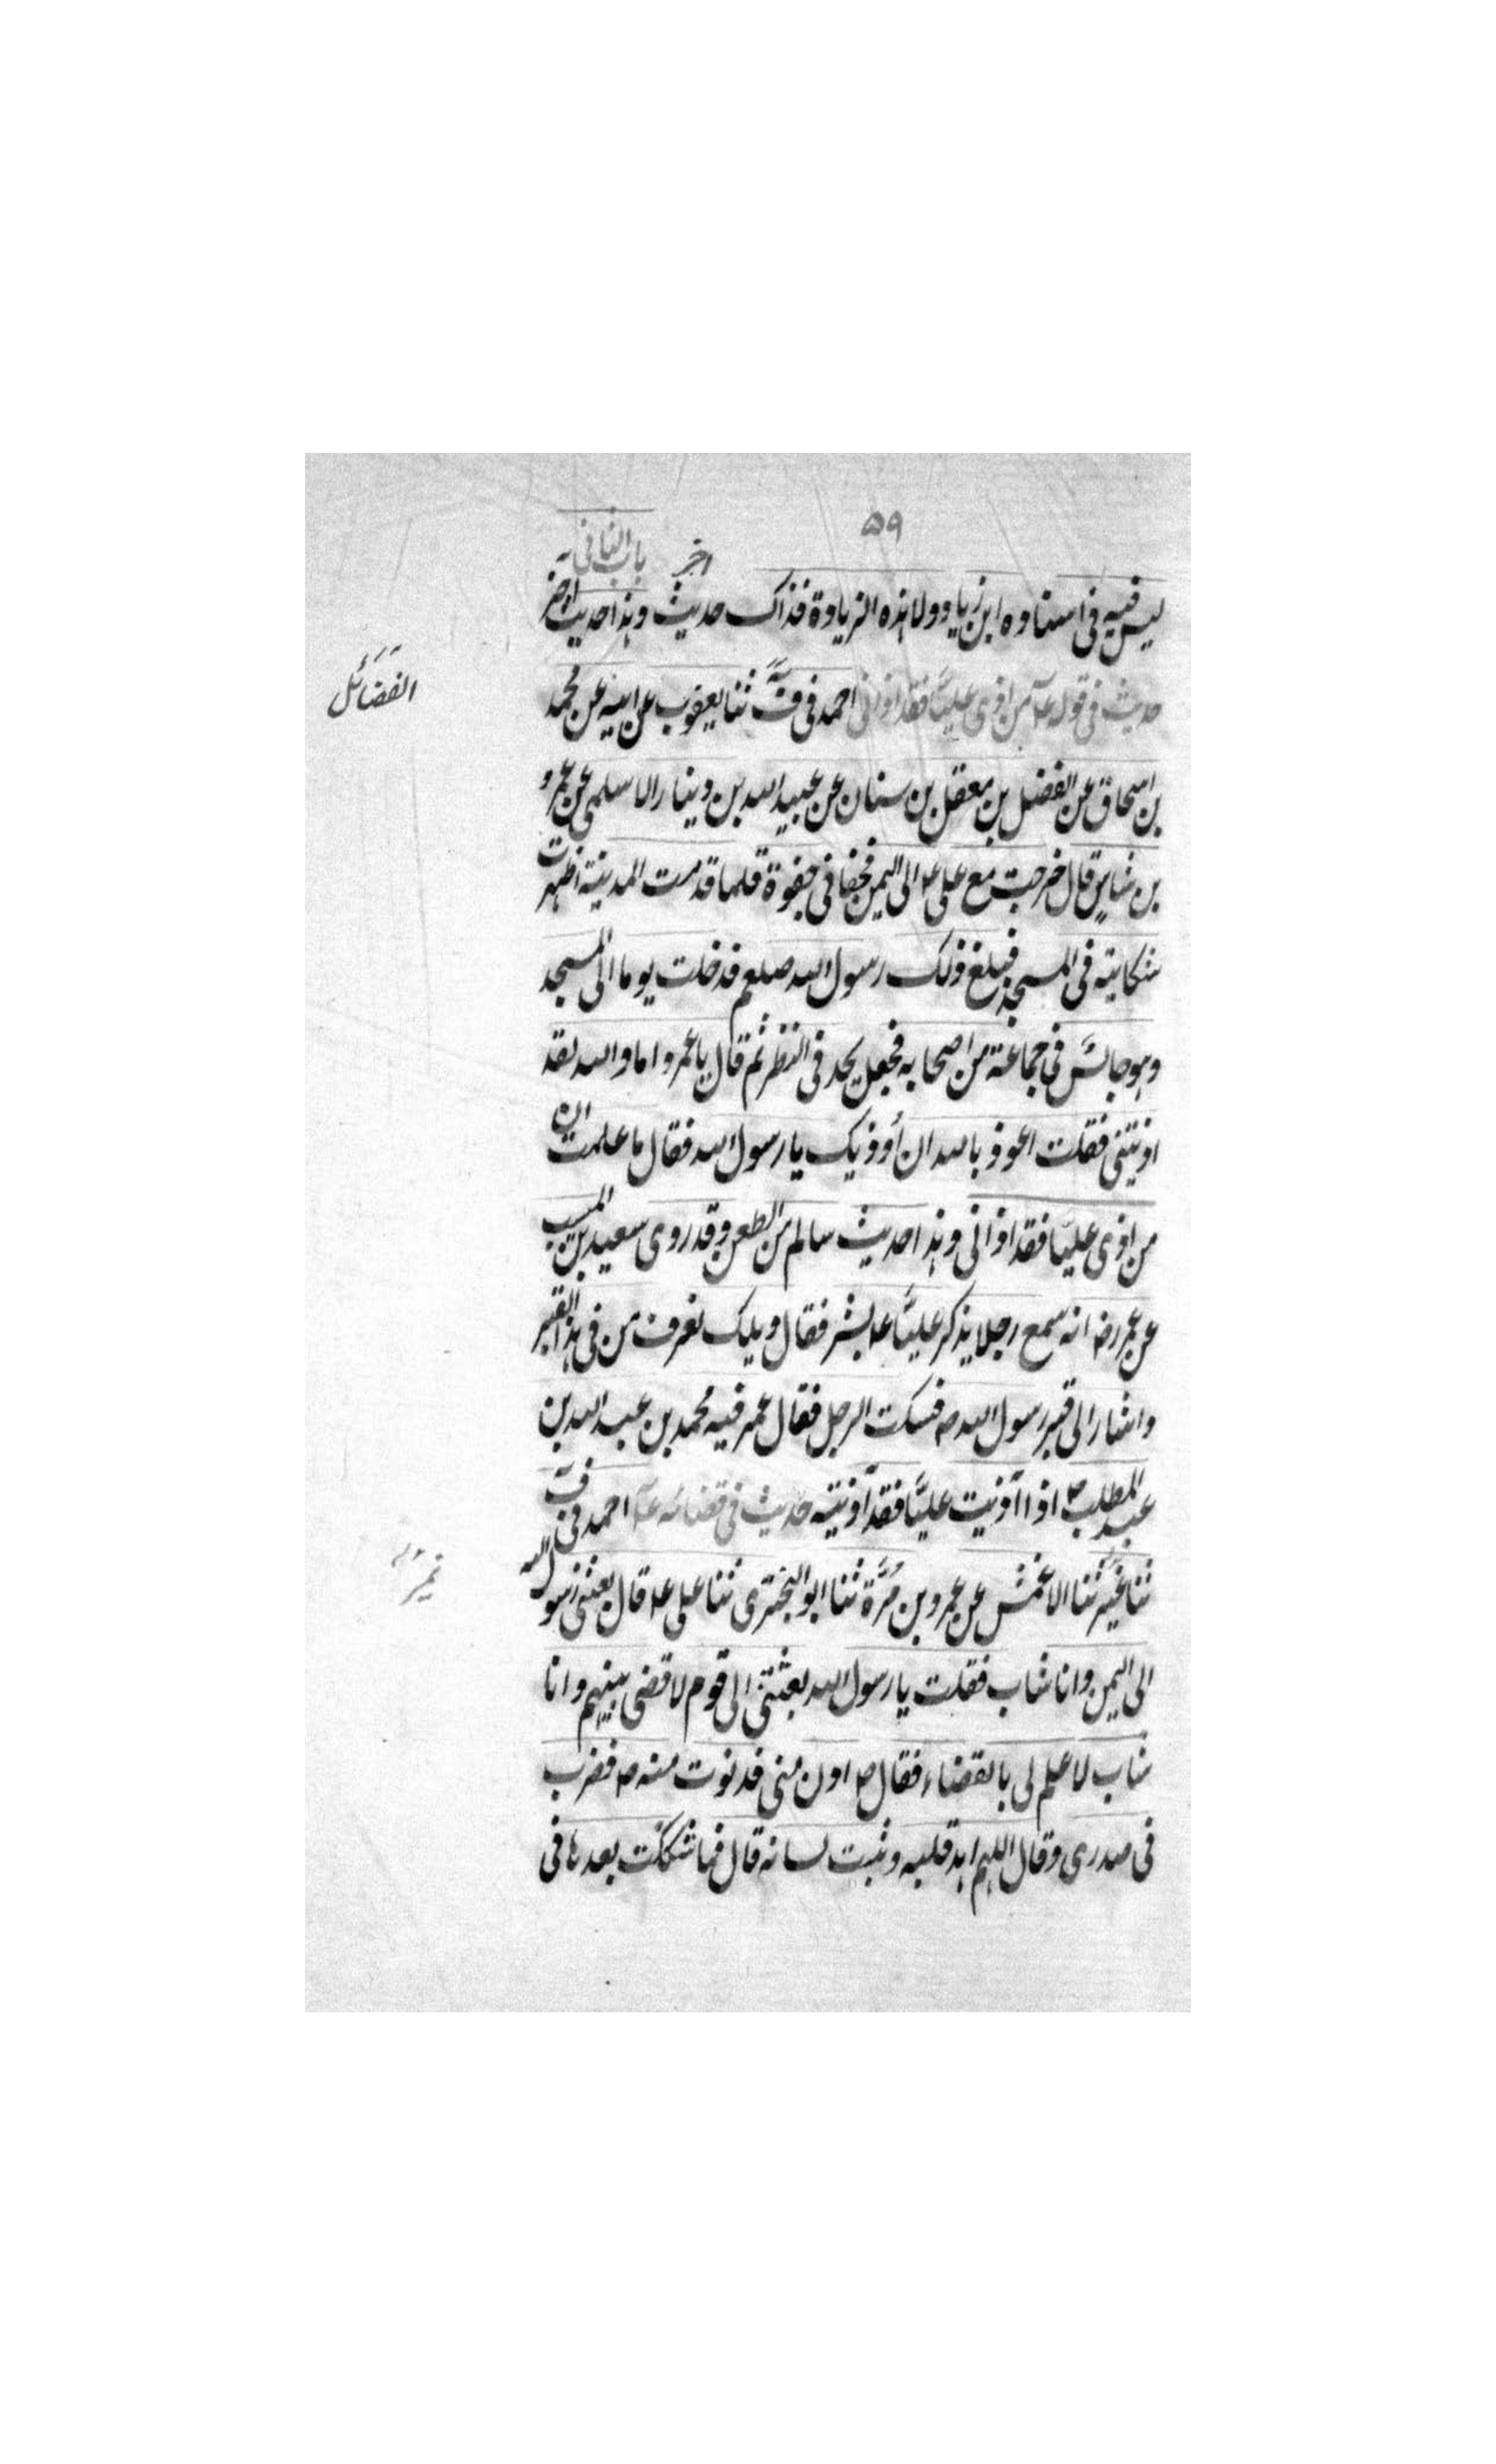 ۵۹
باب الثانی
اخر
لیس فیه فی اسناده ابن زیاد ولا هذه الزیادة فذاک حدیث وهذا حدیث اخر
حدیث فی قوله عم من اذی علیًّا فقد اذانی احمد فی ف ثنا یعقوب عن ابیه عن محمد
الفضائل
بن اسحاق عن الفضل بن معقل بن سنان عن عبید الله بن دینار الاسلمی عن عمرو
بن شاس قال خرجت مع علی عم الی الیمن فجفا فی جفوة فلما قدمت المدینة اظهرت
شکایته فی المسجد فبلغ ذلک رسول الله صلعم فدخلت یوما الی المسجد
وهو جالس فی جماعة من اصحابه فجعل یحد فی النظر ثم قال یا عمرو اما والله لقد
اذیتنی فقلت اعوذ بالله ان أوذیک یا رسول الله فقال ما علمت ان
من اذی علیًّا فقد اذانی وهذا حدیث سالم من الطعن وقد روی سعید بن المسیب
عن عمر رضه انه سمع رجلا یذکر علیًّا عم بشر فقال ویلک تعرف من فی هذا القبر
واشار الی قبر رسول الله ص فسکت الرجل فقال عمر فیه محمد بن عبد الله بن
عبد المطلب ص اذا آذیت علیًّا فقد آذیته حدیث فی قضائه عم احمد فی ف
ثنا نمیر ثنا الاعمش عن عمرو بن مُرَّة ثنا ابو البختری ثنا علی عم قال بعثنی رسول الله
نمیر
الی الیمن وانا شاب فقلت یا رسول الله بعثتنی الی قوم لاقضی بینهم وانا
شاب لا علم لی بالقضاء فقال ص ادن منی فدنوت منه ص فضرب
فی صدری وقال اللهم اهد قلبه وثبت لسانه قال فما شککت بعدها فی